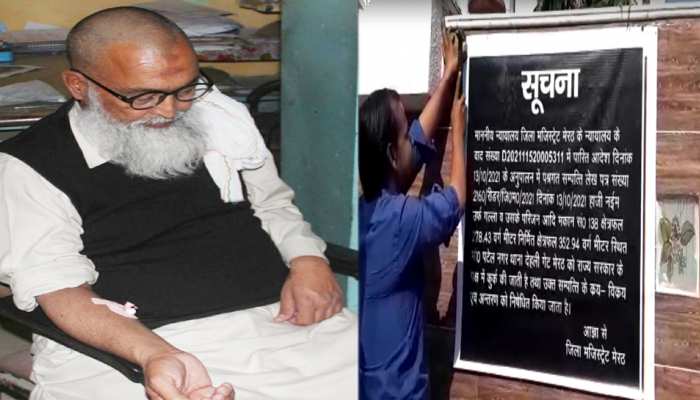 सूचना
माननीय न्यायालय जिला मजिस्ट्रेट मेरठ के न्यायालय के
वाद संख्या D202111520005311 में पारित आदेश दिनांक
13/10/2021 के अनुपालन में पश्चगत सम्पत्ति लेख पत्र संख्या
2160/रीडर/जि०म०/2021 दिनांक 13/10/2021 हाजी नईम
उर्फ गल्ला व उसके परिजन आदि मकान स० 138 क्षेत्रफल
178.43 वर्ग मीटर निर्मित क्षेत्रफल 352.94 वर्ग मीटर स्थित
पटेल नगर थाना देहली गेट मेरठ को राज्य सरकार के
में कुर्क की जाती है तथा उक्त सम्पत्ति के कय- विक्रय
एवं अन्तरण को निषेधित किया जाता है।
आज्ञा से
जिला मजिस्ट्रेट मेरठ